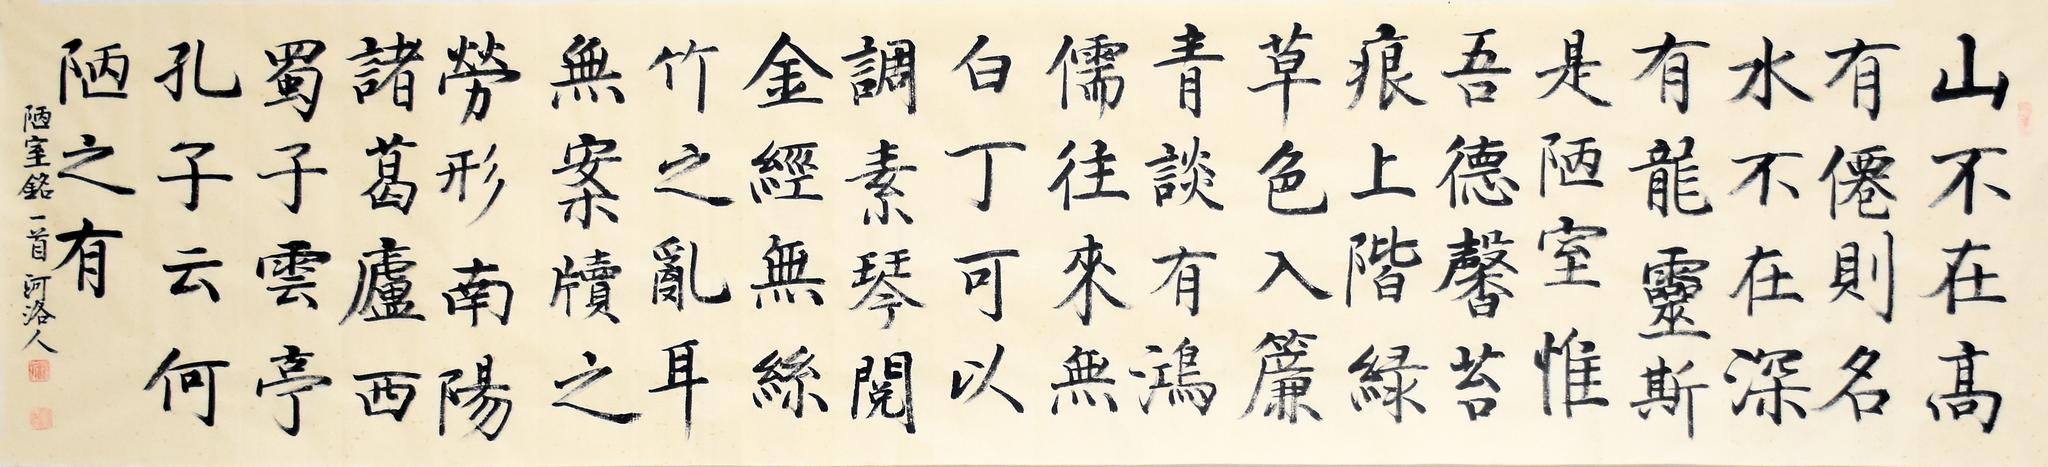 山不在高
有僊則名
水不在深
有龍靈斯
是陋室惟
吾德馨苔
痕上階緑
草色入簾
青談有鴻
儒往來無
白丁可以
調素琴閱
金經無絲
竹之亂耳
無案牘之
勞形南陽
諸葛廬西
蜀子雲亭
孔子云何
陋之有
陋室銘一首河洛人